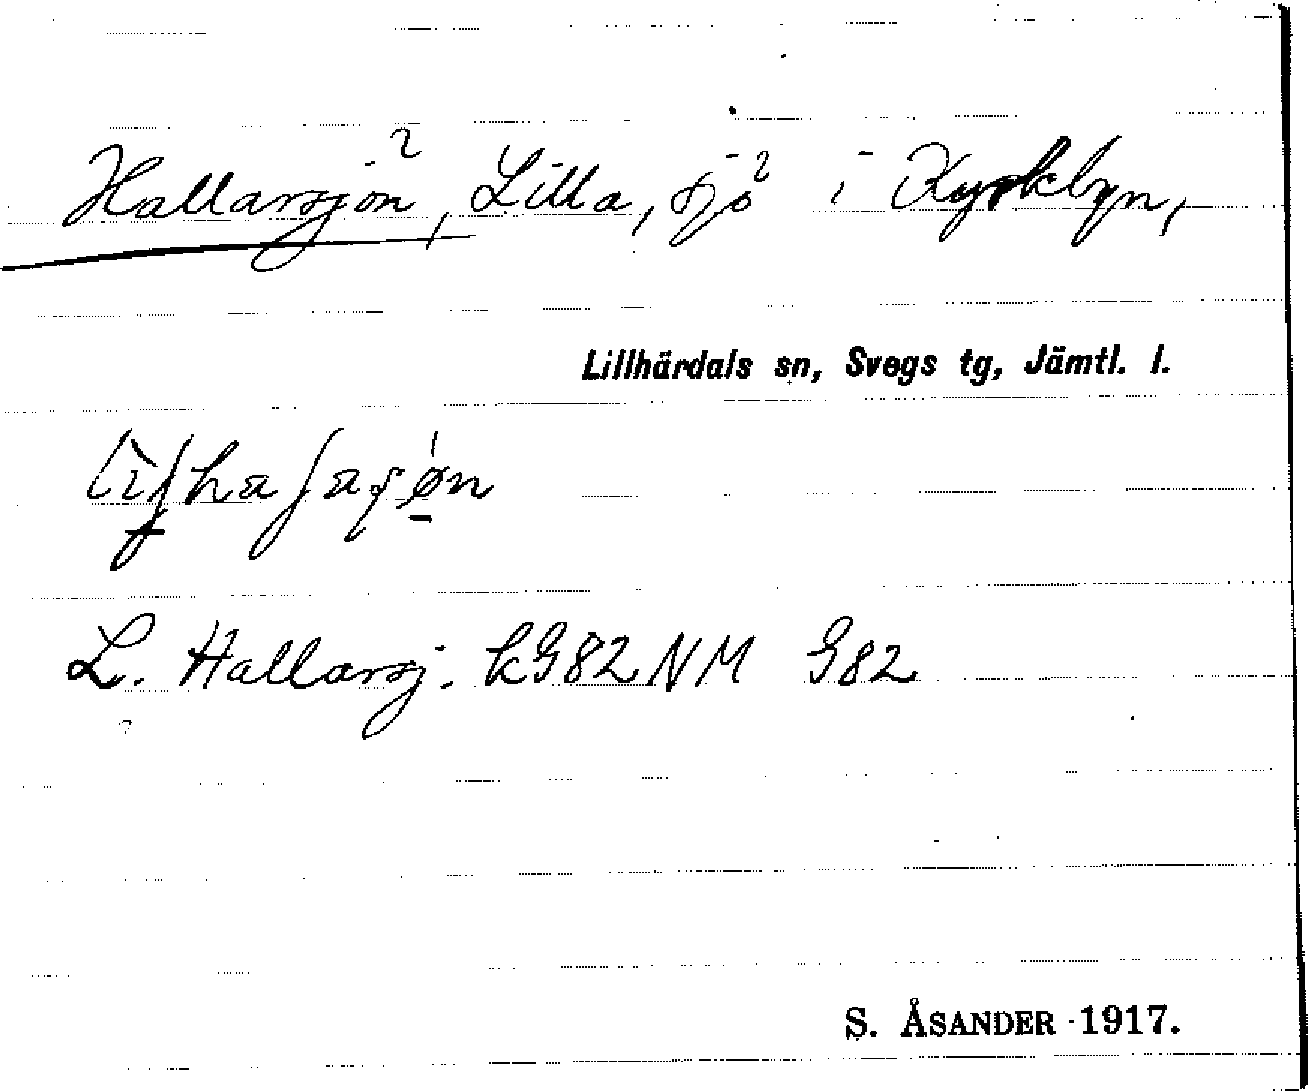 Hallarsjön, Lilla, sjö i Kyrkbyn,
Lillhärdals sn, Svegs tg, Jämtl. l.
L. Hallarsj. kG82NM G82
S. ÅSANDER 1917.